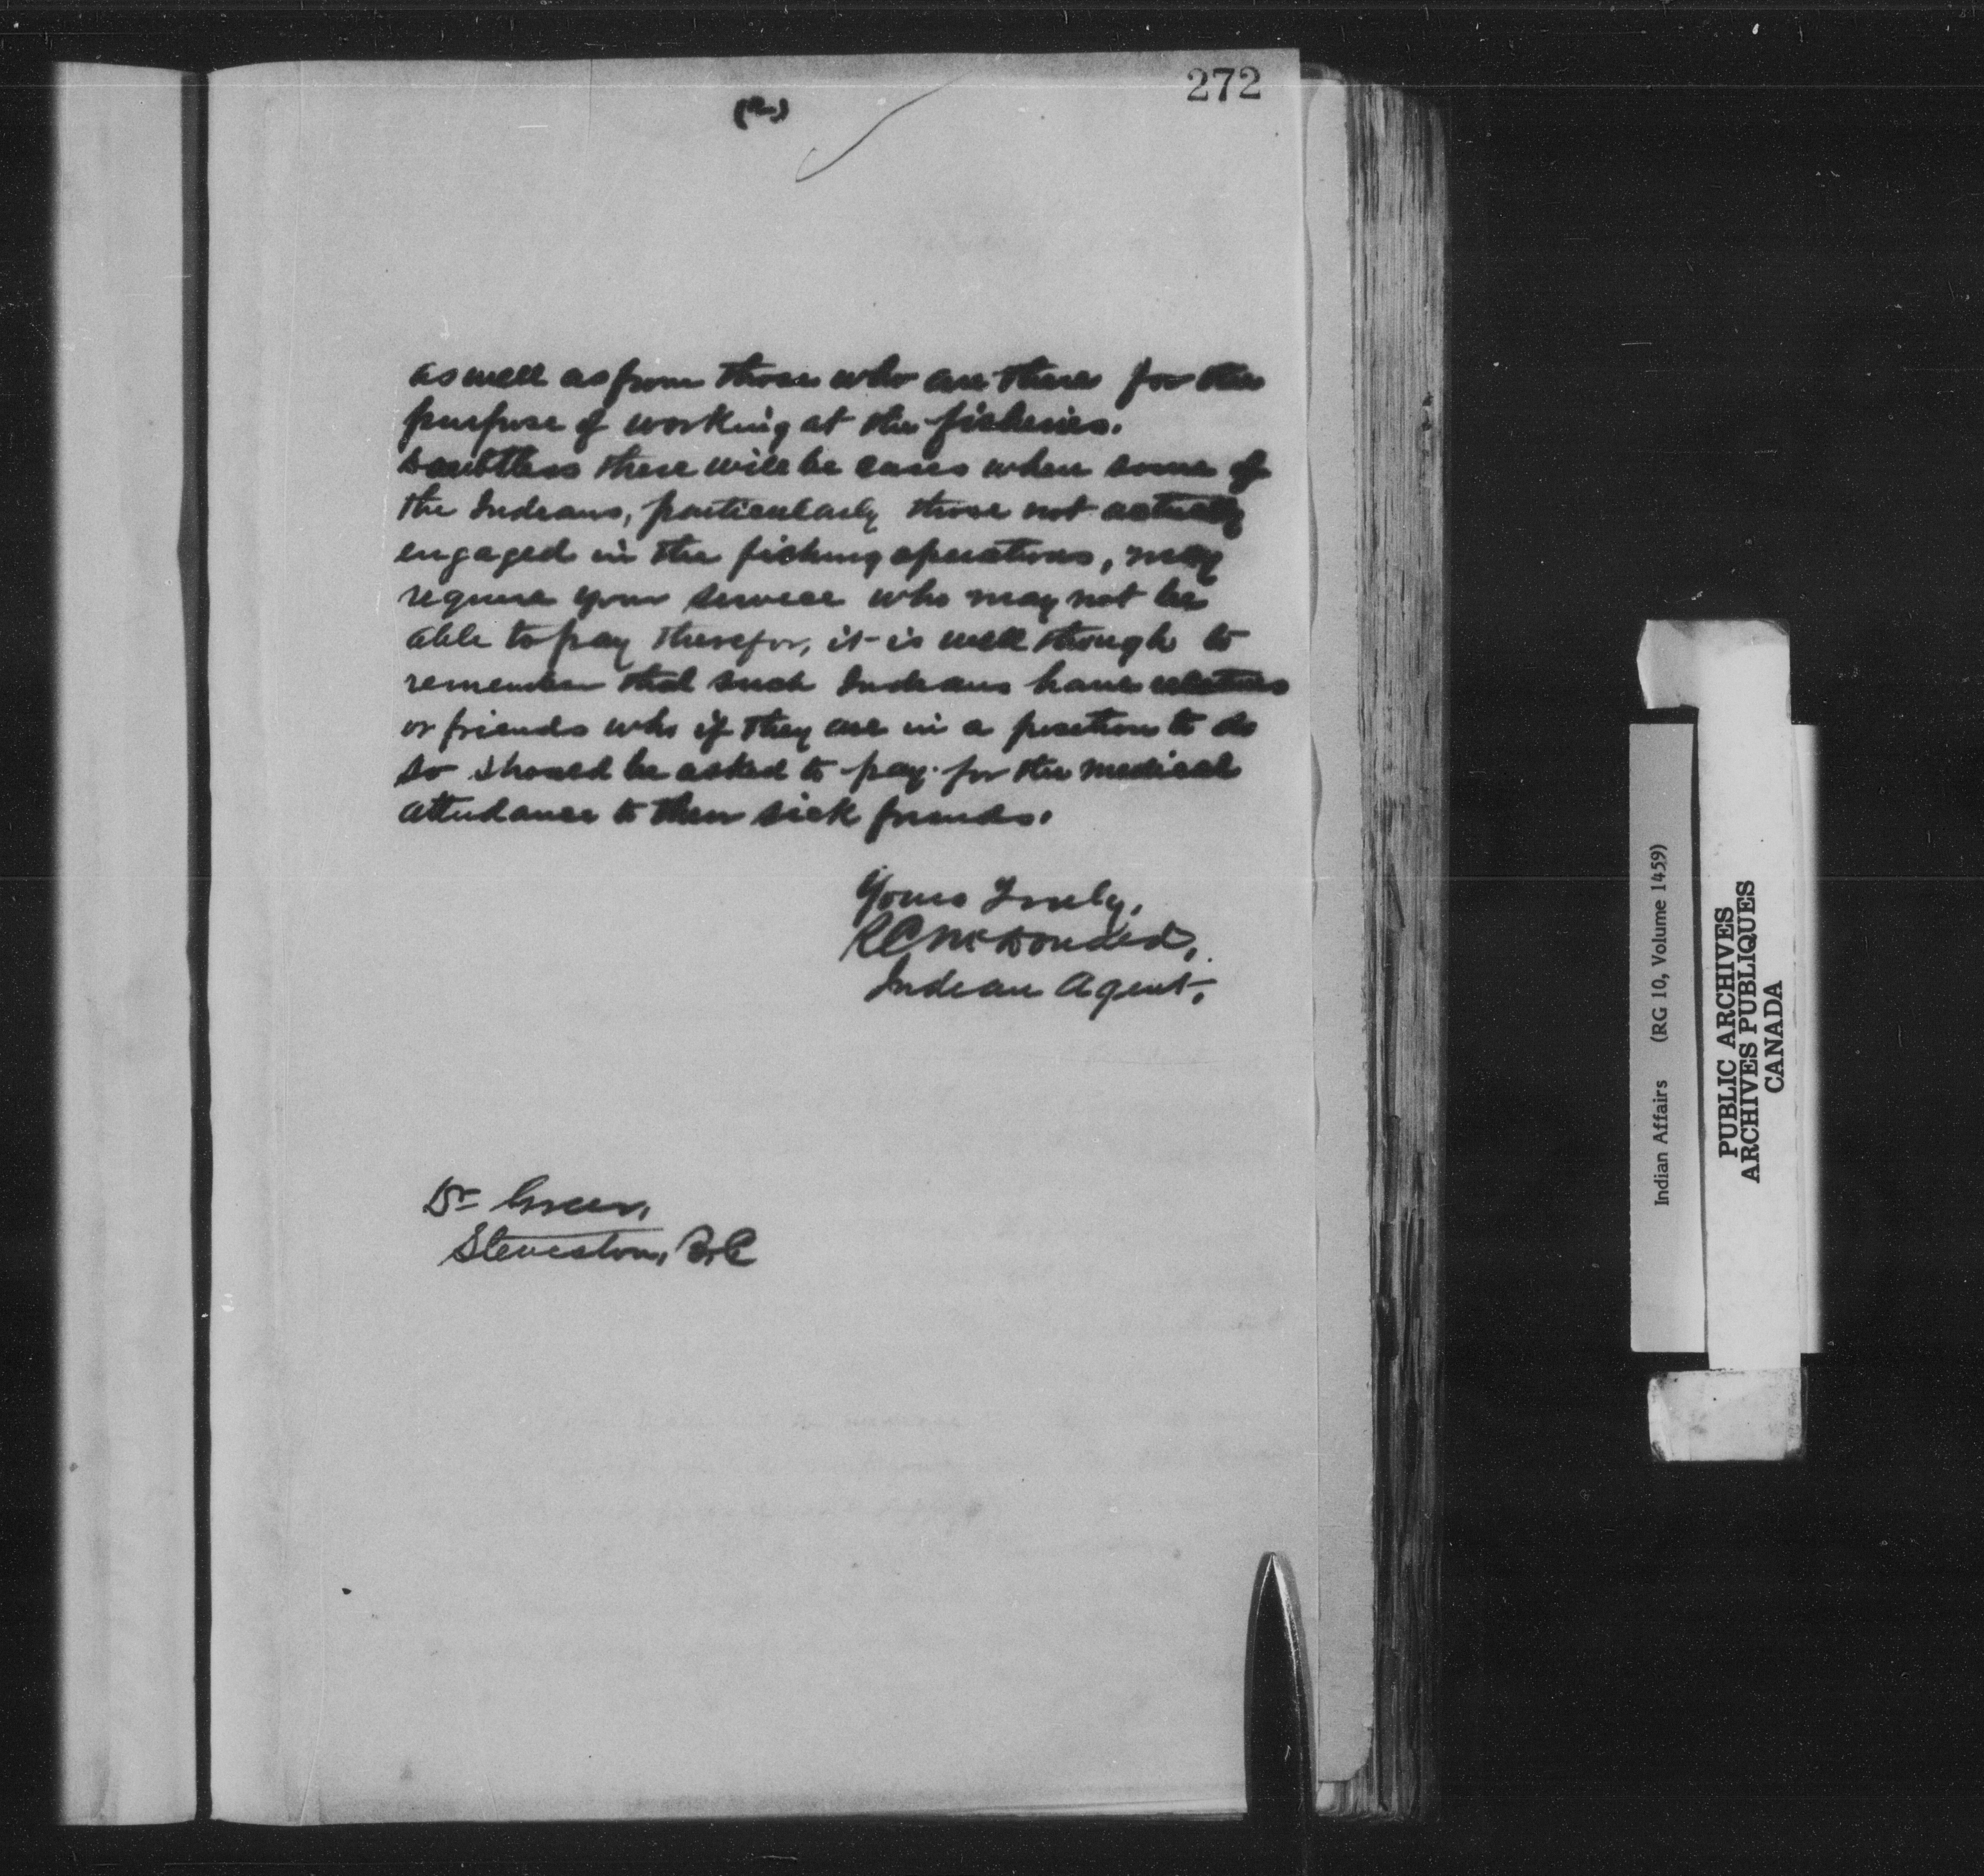 272
(2)
as well as from those who are there for the
purpose of working at the fisheries.
Doubtless there will be cases where some of
the Indians, particularly those not actually
engaged in the fishing operations, may
require your service who may not be
able to pay therefor, it is well though to
remember that such Indians have relatives
or friends who if they are in a position to do
so should be asked to pay for the medical
attendance to their sick friends.
Yours Truly,
R C McDonald,
Indian Agent,
Dr Green,
Steveston, B.C
Indian Affairs (RG 10, Volume 1459)
PUBLIC ARCHIVES
ARCHIVES PUBLIQUES
CANADA